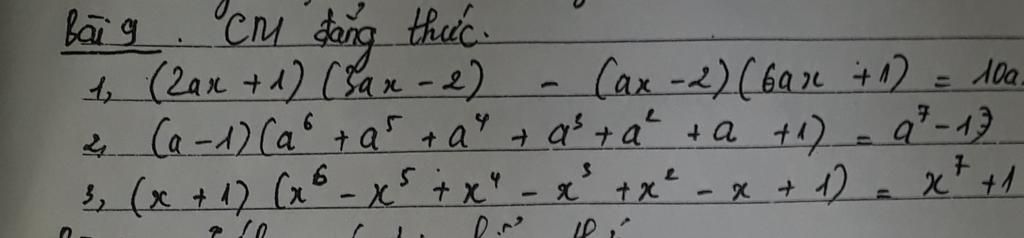 Bài 9. CM đẳng thức.
1, (2ax + 1) (3ax - 2) - (ax - 2) (6ax + 1) = 10a
2, (a - 1) (a⁶ + a⁵ + a⁴ + a³ + a² + a + 1) = a⁷ - 1
3, (x + 1) (x⁶ - x⁵ + x⁴ - x³ + x² - x + 1) = x⁷ + 1